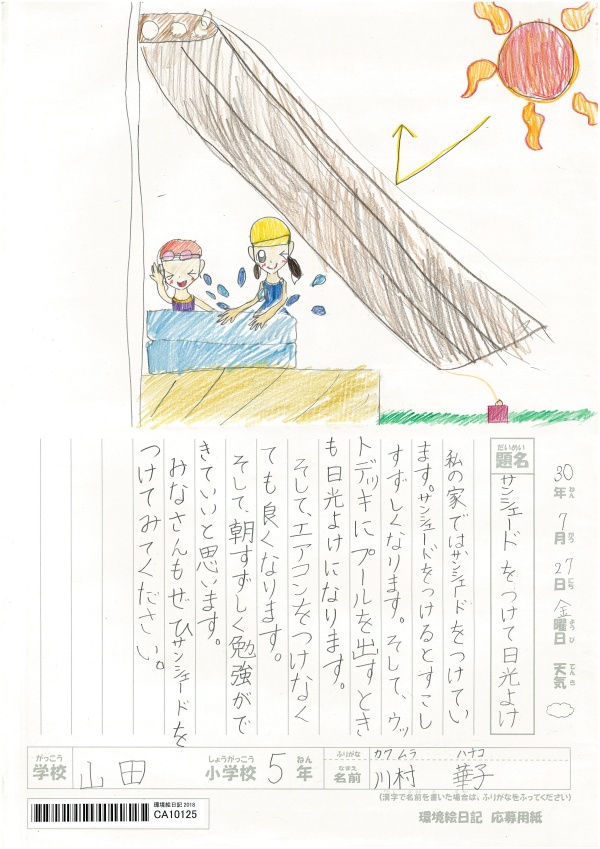 30年7月27日金曜日 天気
ねん がつ にち ようび てんき
だいめい
題名 サンシェードをつけて日光よけ
私の家ではサンシェードをつけてい
ます。サンシェードをつけるとすこし
すずしくなります。そして、ウッ
トデッキにプールを出すとき
も日光よけになります。
そして、エアコンをつけなく
ても良くなります。
そして、朝すずしく勉強がで
きていいと思います。
みなさんもぜひサンシェードを
つけてみてください。
がっこう しょうがっこう ねん
学校 山田 小学校 5年
ふりがな カワムラ ハナコ
なまえ
名前 川村 華子
(漢字で名前を書いた場合は、ふりがなをふってください)
環境絵日記 2018
CA10125
環境絵日記 応募用紙